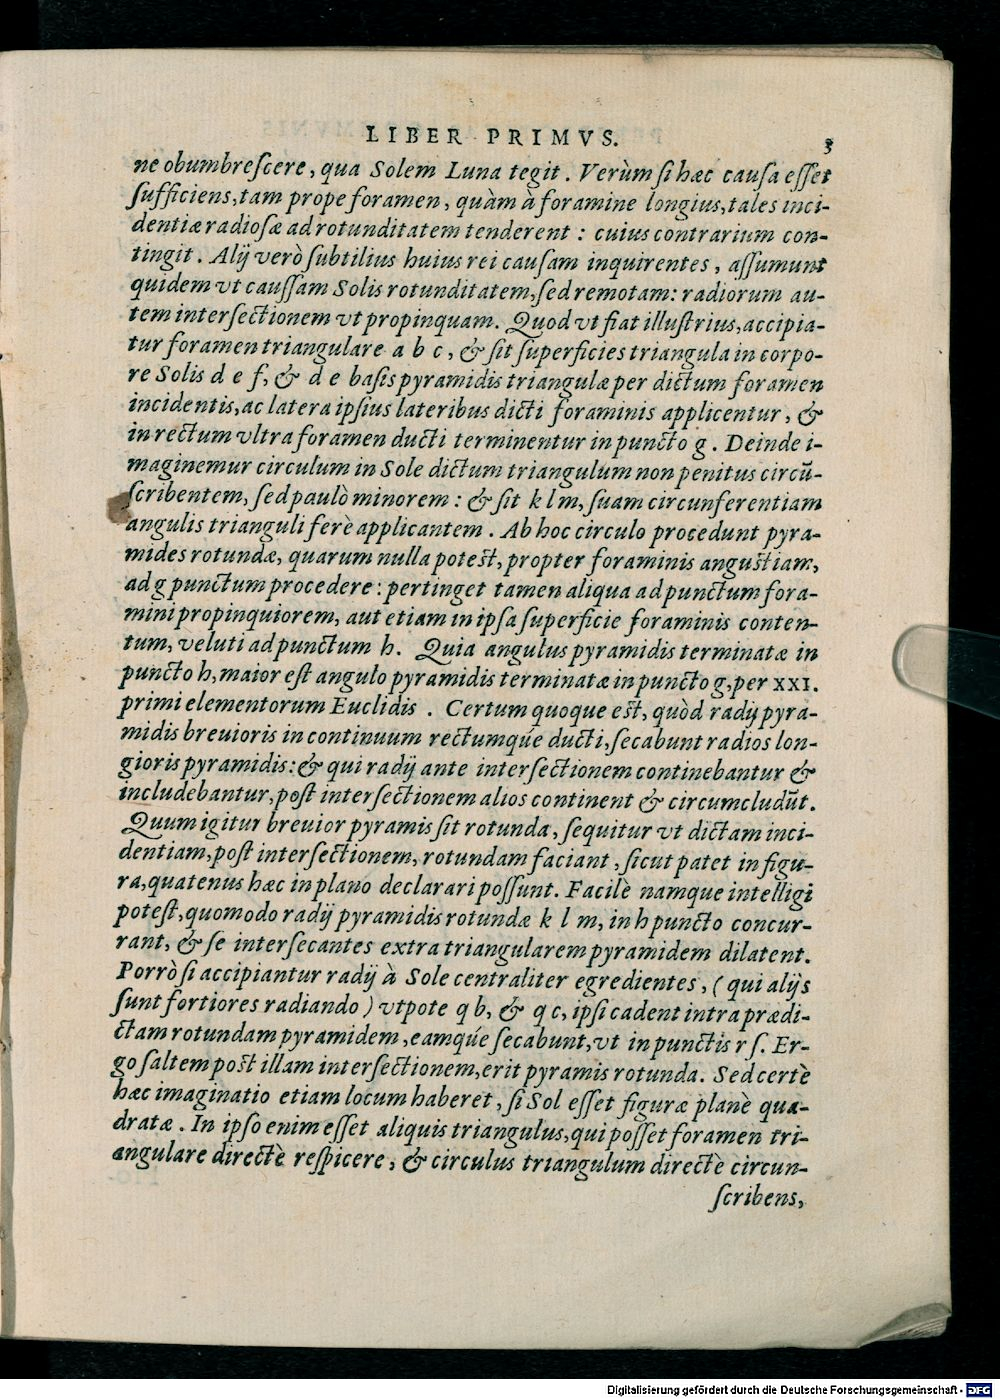 LIBER PRIMVS. 3
ne obumbrescere, qua Solem Luna tegit. Verùm si hæc causa esset
sufficiens, tam prope foramen, quàm à foramine longius, tales inci-
dentiæ radiosæ ad rotunditatem tenderent: cuius contrarium con-
tingit. Alij verò subtilius huius rei causam inquirentes, assumunt
quidem vt caussam Solis rotunditatem, sed remotam: radiorum au-
tem intersectionem vt propinquam. Quod vt fiat illustrius, accipia-
tur foramen triangulare a b c, & sit superficies triangula in corpo-
re Solis d e f, & d e basis pyramidis triangulæ per dictum foramen
incidentis, ac latera ipsius lateribus dicti foraminis applicentur, &
in rectum vltra foramen ducti terminentur in puncto g. Deinde i-
maginemur circulum in Sole dictum triangulum non penitus circũ-
scribentem, sed paulò minorem: & sit k l m, suam circunferentiam
angulis trianguli ferè applicantem. Ab hoc circulo procedunt pyra-
mides rotundæ, quarum nulla potest, propter foraminis angustiam,
ad g punctum procedere: pertinget tamen aliqua ad punctum fora-
mini propinquiorem, aut etiam in ipsa superficie foraminis conten-
tum, veluti ad punctum h. Quia angulus pyramidis terminatæ in
puncto h, maior est angulo pyramidis terminatæ in puncto g, per XXI.
primi elementorum Euclidis. Certum quoque est, quòd radij pyra-
midis breuioris in continuum rectumqúe ducti, secabunt radios lon-
gioris pyramidis: & qui radij ante intersectionem continebantur &
includebantur, post intersectionem alios continent & circumcludũt.
Quum igitur breuior pyramis sit rotunda, sequitur vt dictam inci-
dentiam, post intersectionem, rotundam faciant, sicut patet in figu-
ra, quatenus hæc in plano declarari possunt. Facilè namque intelligi
potest, quomodo radij pyramidis rotundæ k l m, in h puncto concur-
rant, & se intersecantes extra triangularem pyramidem dilatent.
Porrò si accipiantur radij à Sole centraliter egredientes, (qui alijs
sunt fortiores radiando) vtpote q b, & q c, ipsi cadent intra prædi-
ctam rotundam pyramidem, eamqúe secabunt, vt in punctis r s. Er-
go saltem post illam intersectionem, erit pyramis rotunda. Sed certè
hæc imaginatio etiam locum haberet, si Sol esset figuræ planè qua-
dratæ. In ipso enim esset aliquis triangulus, qui posset foramen tri-
angulare directè respicere, & circulus triangulum directè circun-
scribens,
Digitalisierung gefördert durch die Deutsche Forschungsgemeinschaft - DFG